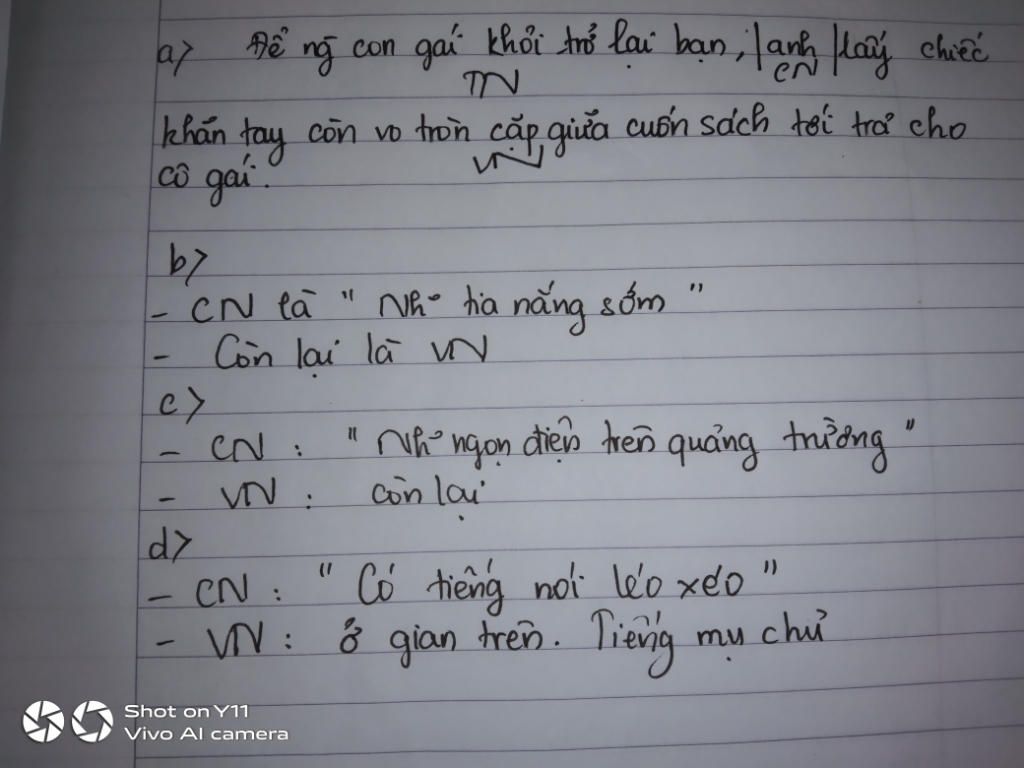 a> Để ng̃ con gái khỏi trở lại bạn, | anh | lấy chiếc
TN CN
khăn tay còn vo tròn cặp giữa cuốn sách tới trả cho
VN
cô gái.
b>
- CN là " Nh~ tia nắng sớm "
- Còn lại là VN
c>
- CN : " Nh~ ngọn điện trên quảng trường "
- VN : còn lại
d>
- CN : " Có tiếng nói léo xéo "
- VN : ở gian trên. Tiếng mụ chủ
Shot on Y11
Vivo AI camera